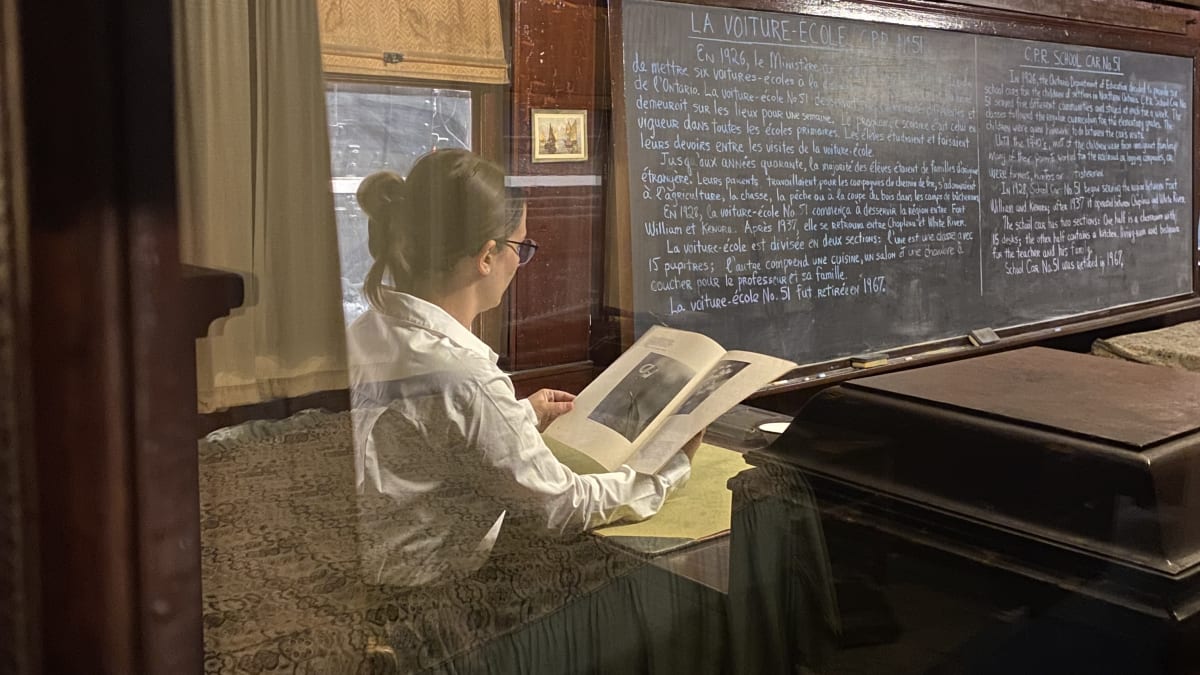 LA VOITURE-ÉCOLE C.P.R. Nº51
En 1926, le Ministère
de mettre six voitures-écoles à la
de l'Ontario. La voiture-école No. 51 desservait
demeuroit sur les lieux pour une semaine. Le programme scolaire était celui en
vigueur dans toutes les écoles primaires. Les élèves étudiaient et faisaient
leurs devoirs entre les visites de la voiture-école.
Jusqu'aux années quarante, la majorité des élèves étaient de familles d'origine
étrangère. Leurs parents travaillaient pour les compagnies du chemin de fer, s'adonnaient
à l'agriculture, la chasse, la pêche ou à la coupe du bois dans les camps de bûcherons.
En 1928, la voiture-école No. 51 commença à desservir la région entre Fort
William et Kenora. Après 1937, elle se retrouva entre Chapleau et White River.
La voiture-école est divisée en deux sections: l'une est une classe avec
15 pupitres; l'autre comprend une cuisine, un salon et une chambre à
coucher pour le professeur et sa famille.
La voiture-école No. 51 fut retirée en 1967.
C.P.R. SCHOOL CAR No. 51
In 1926, the Ontario Department of Education decided to provide six
school cars for the children of settlers in Northern Ontario. C.P.R. School Car No.
51 served five different communities and stayed at each for a week. The
classes followed the regular curriculum for the elementary grades. The
children were given homework to do between the car's visits.
Until the 1940's, most of the children were from immigrant families.
Many of their parents worked for the railroad or logging companies,
were farmers, hunters or fishermen.
In 1928, School Car No. 51 began serving the region between Fort
William and Kenora; after 1937 it operated between Chapleau and White River.
The school car has two sections: One half is a classroom with
15 desks; the other half contains a kitchen, living room and bedroom
for the teacher and his family.
School Car No. 51 was retired in 1967.